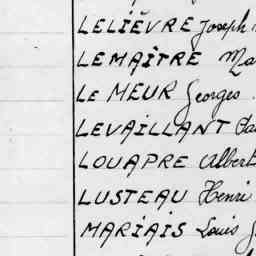 LELIÈVRE Joseph
LEMAÎTRE
LE MEUR Georges
LEVAILLANT
LOUAPRE Albert
LUSTEAU Henri
MARIAIS Louis